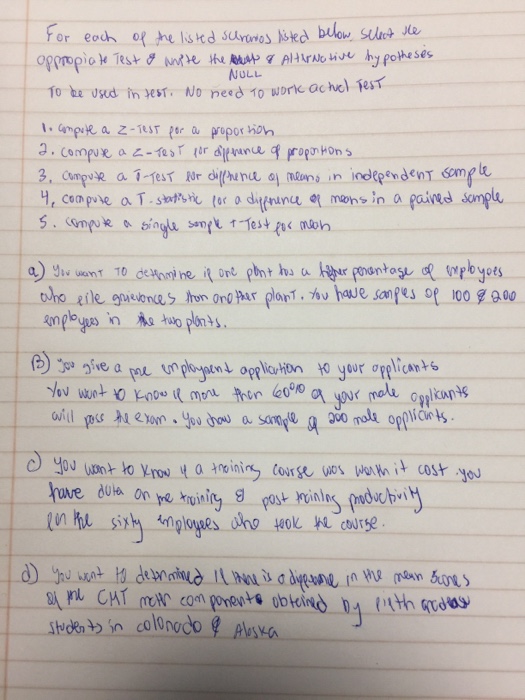 For each of the listed scenarios listed below select the
appropiate Test & write the & Alternative hypotheses
NULL
To be used in test. No need to work actual Test
1. compute a Z-TEST for a proportion
2. compute a Z-Test for difference of proportions
3. compute a T-Test for difference of means in independent sample
4. compute a T-statistic for a difference of means in a paired sample
5. compute a single sample t Test for mean
a) You want to determine if one plant has a higher percentage of employees
who file grievances than another plant. You have samples of 100 & 200
employees in the two plants.
B) you give a pre employment application to your applicants
You want to know if more than 60% of your male applicants
will pass the exam. You draw a sample of 200 male applicants.
c) you want to know if a training course was worth it cost. you
have data on pre training & post training productivity
for the sixty employees who took the course.
d) you want to determined if there is a difference in the mean scores
of the CMT math components obtained by fifth
students in colorado & Alaska